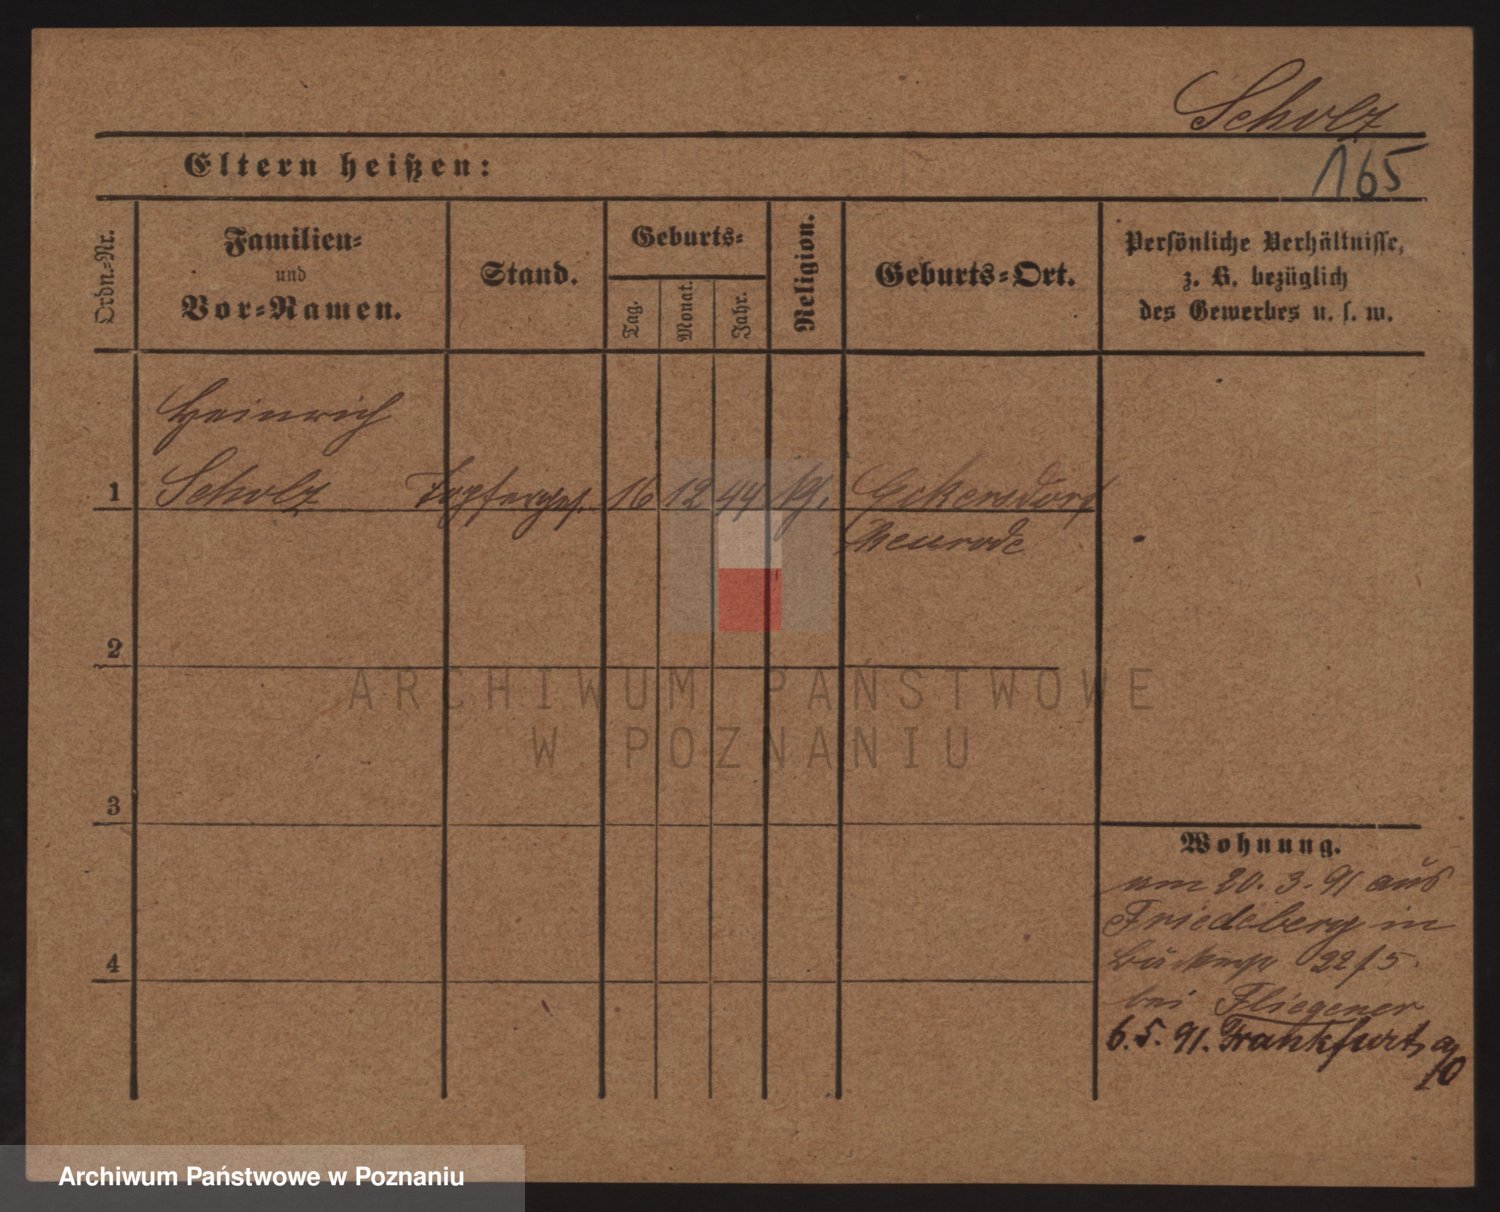 Scholz
Eltern heißen:
165
Ordn.-Nr.
Familien-
und
Vor-Namen.
Stand.
Geburts-
Tag.
Monat.
Jahr.
Religion.
Geburts-Ort.
Persönliche Verhältnisse,
z. B. bezüglich
des Gewerbes u. s. w.
Heinrich
1 Scholz Töpferges. 16 12 44 Eckersdorf
Neurode
2
3
4
Wohnung.
am 20. 3. 91 aus
Friedeberg in
22/5
bei Fliegener
6. 5. 91. Frankfurt a/O
ARCHIWUM PAŃSTWOWE
W POZNANIU
Archiwum Państwowe w Poznaniu